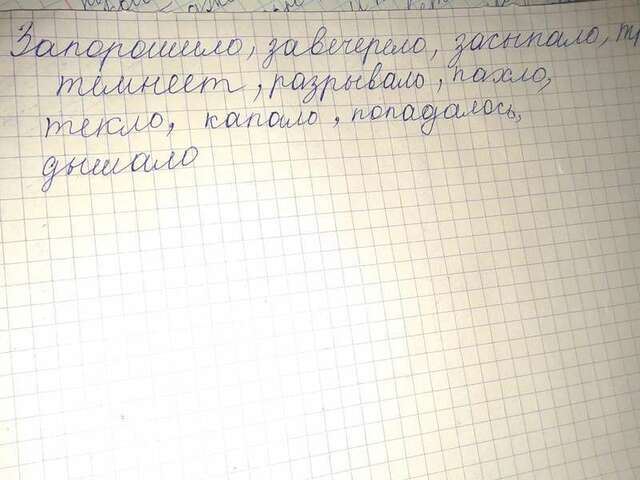 Запорошило, завечерело, засыпало,
темнеет, разрывало, пахло,
текло, капало, попадалось,
дышало